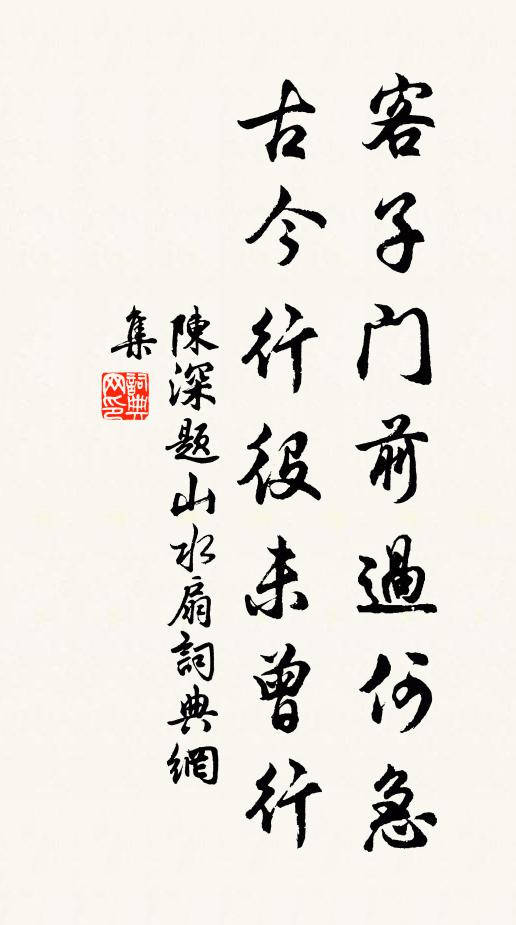 客子門前過何急
古今行役未曾行
陳深題山水扇詞典網
集
詞典
网印